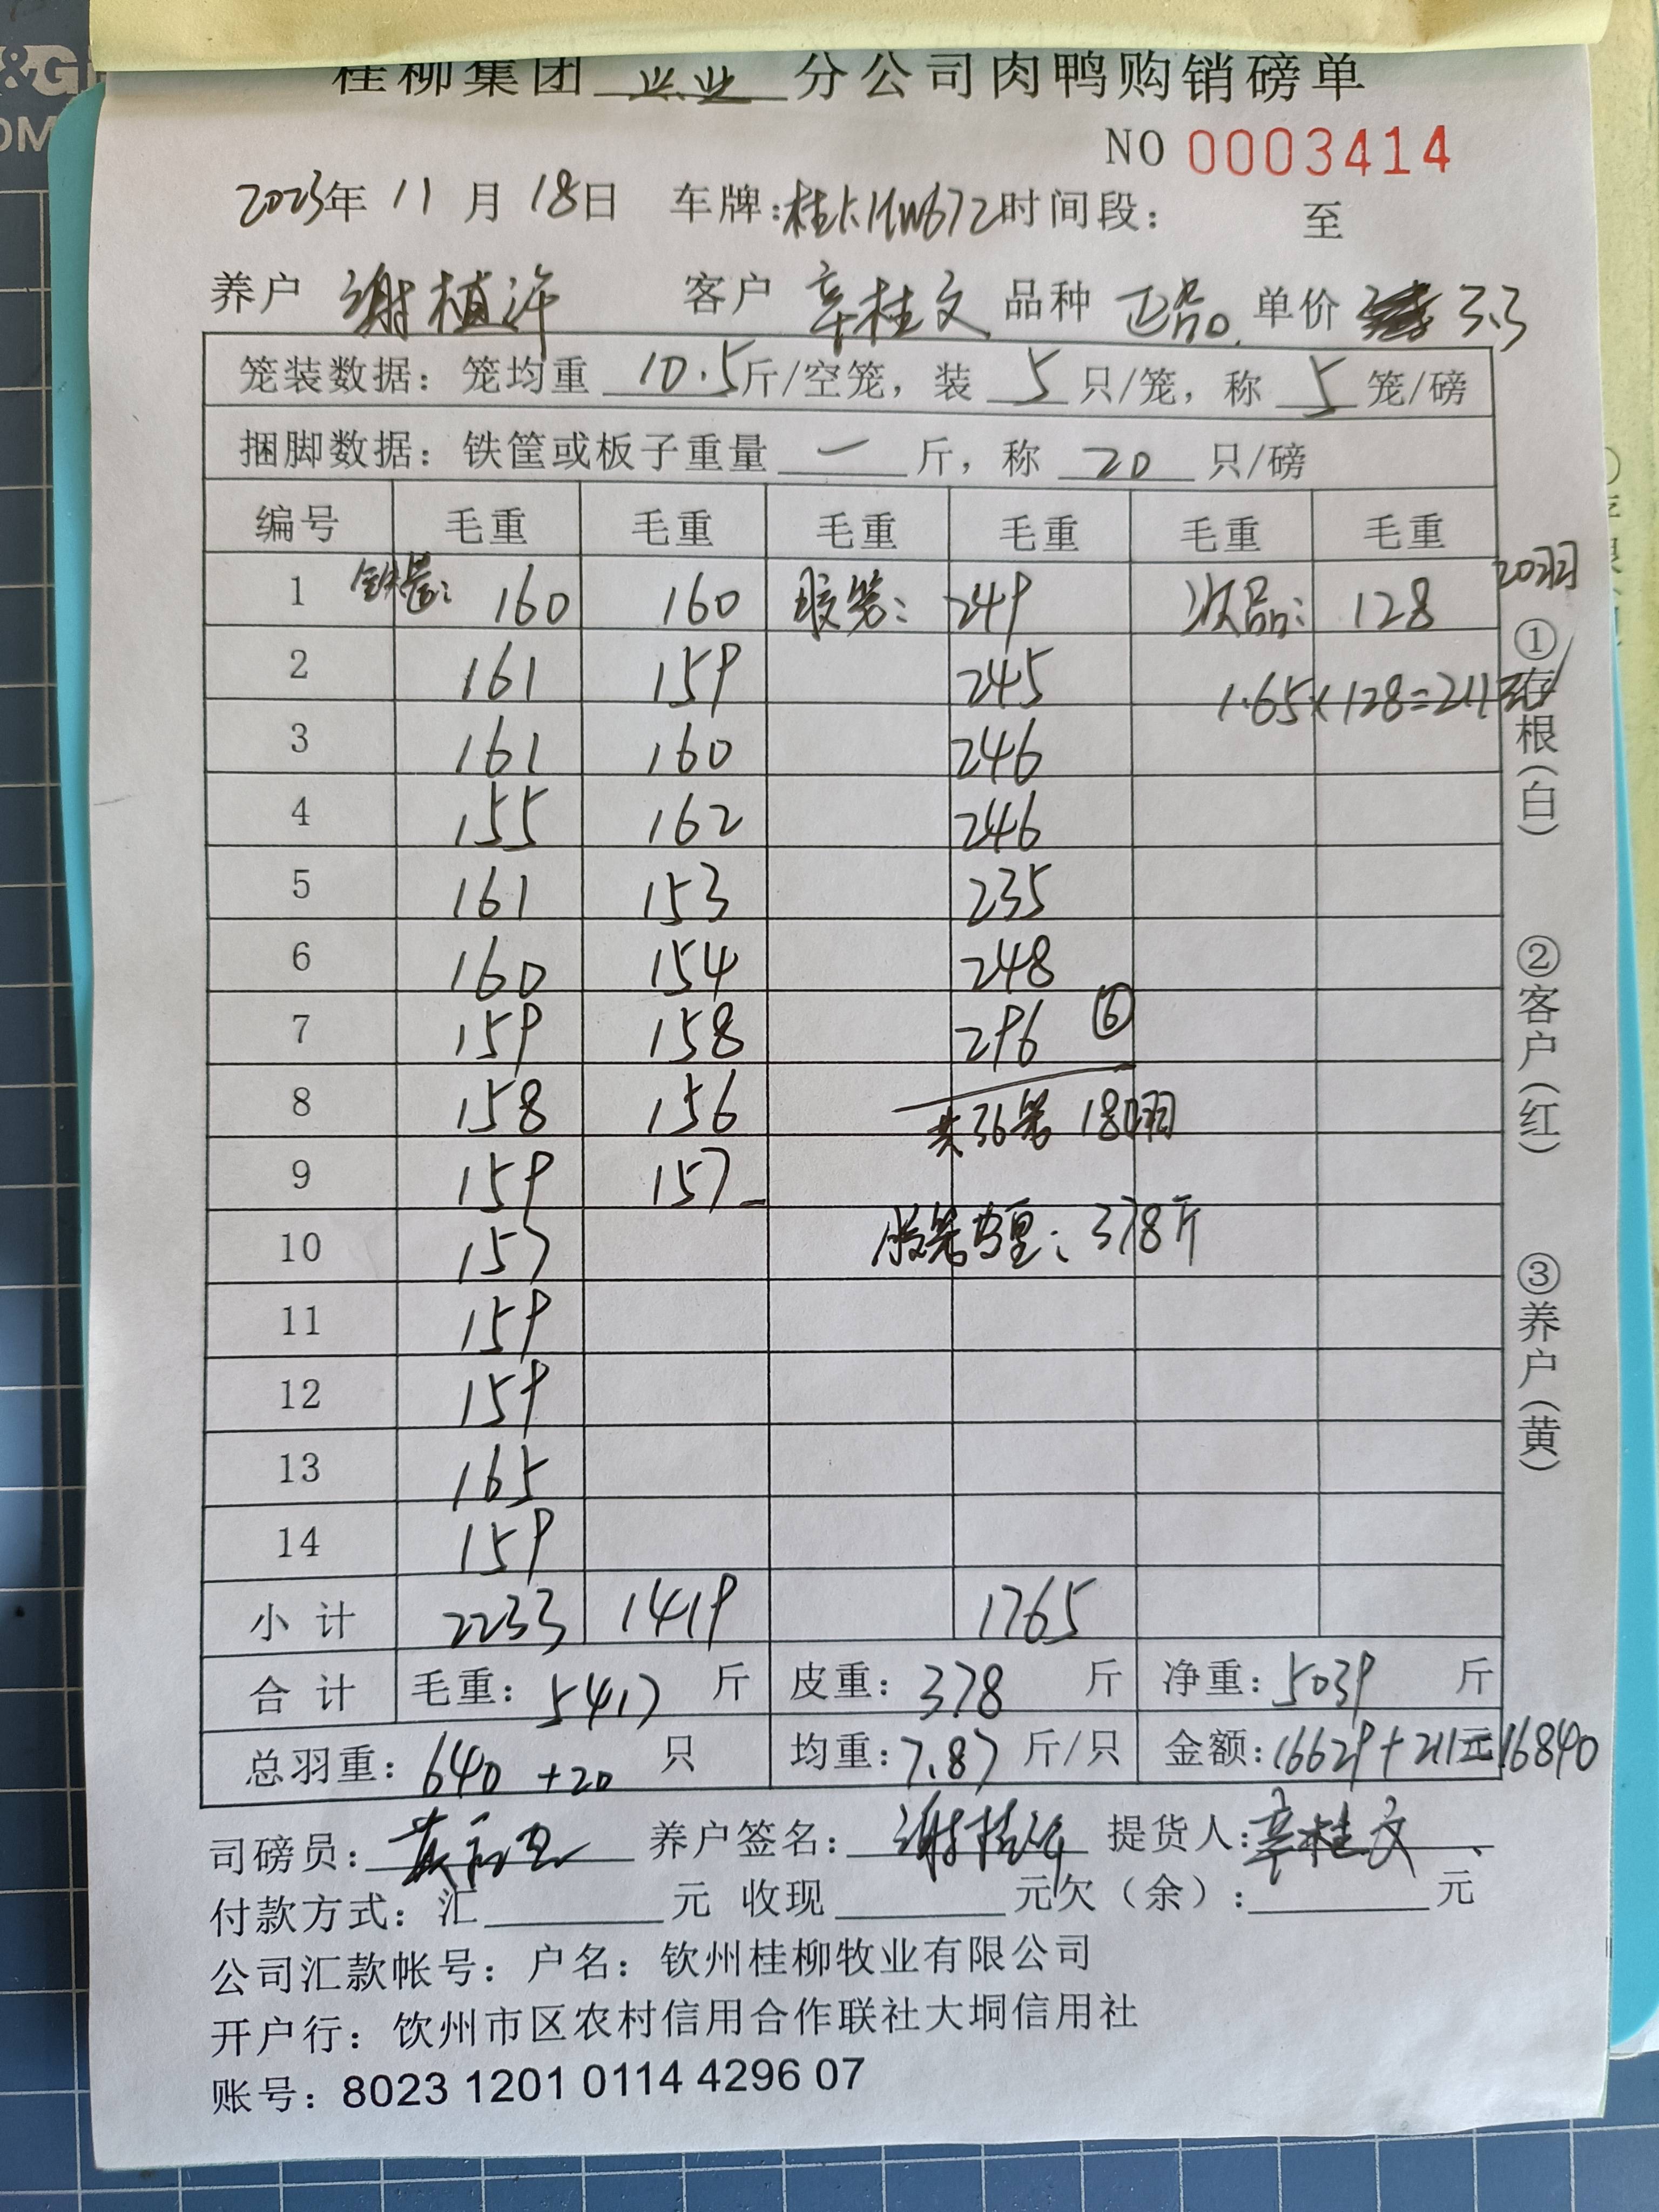 &G
OM
桂柳集团 兴业 分公司肉鸭购销磅单
NO 0003414
2023年 11 月 18日 车牌: 时间段: 至
养户 谢植许 客户 辛桂文 品种 正品. 单价 3.3
笼装数据: 笼均重 10.5 斤/空笼, 装 5 只/笼, 称 5 笼/磅
捆脚数据: 铁筐或板子重量 一 斤, 称 20 只/磅
编号 毛重 毛重 毛重 毛重 毛重 毛重
1 铁筐: 160 160 胶笼: 249 次品: 128 20羽
2 161 159 245 1.65×128=211元
3 161 160 246
4 155 162 246
5 161 153 235
6 160 154 248
7 159 158 296 ⑥
8 158 156 共36笼 180羽
9 159 157
10 157 胶笼皮重: 378斤
11 159
12 159
13 165
14 159
小 计 2233 1419 1765
合 计 毛重: 5417 斤 皮重: 378 斤 净重: 5039 斤
总羽重: 640 +20 只 均重: 7.87 斤/只 金额: 16629+211元 16840
司磅员: 养户签名: 谢植许 提货人: 辛桂文
付款方式: 汇 元 收现 元欠（余）: 元
公司汇款帐号: 户名: 钦州桂柳牧业有限公司
开户行: 钦州市区农村信用合作联社大垌信用社
账号: 8023 1201 0114 4296 07
①存根（白）
②客户（红）
③养户（黄）